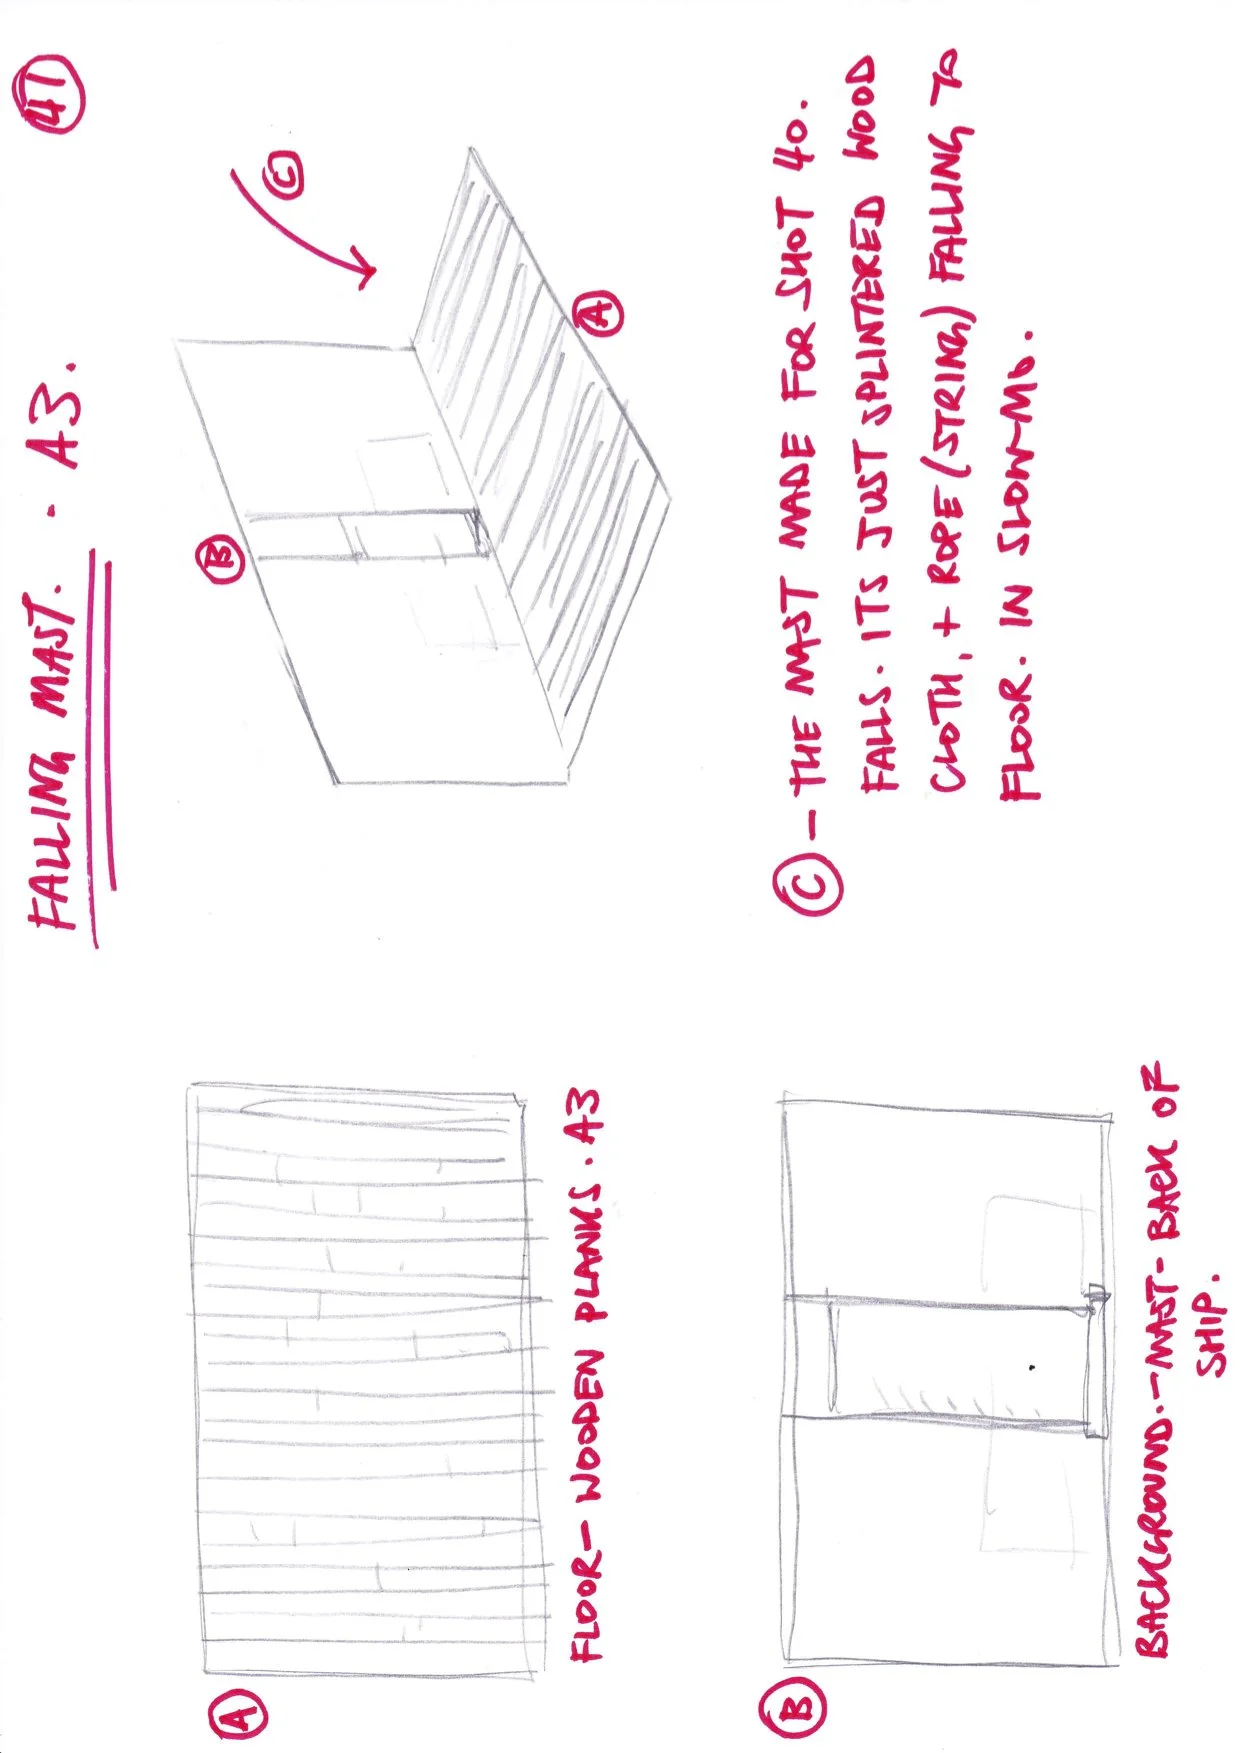 FALLING MAST. · A3.
41
B
C
A
A
FLOOR - WOODEN PLANKS. A3
B
BACKGROUND. - MAST - BACK OF
SHIP.
C - THE MAST MADE FOR SHOT 40.
FALLS. ITS JUST SPLINTERED WOOD
CLOTH, + ROPE (STRING) FALLING TO
FLOOR. IN SLOW-MO.